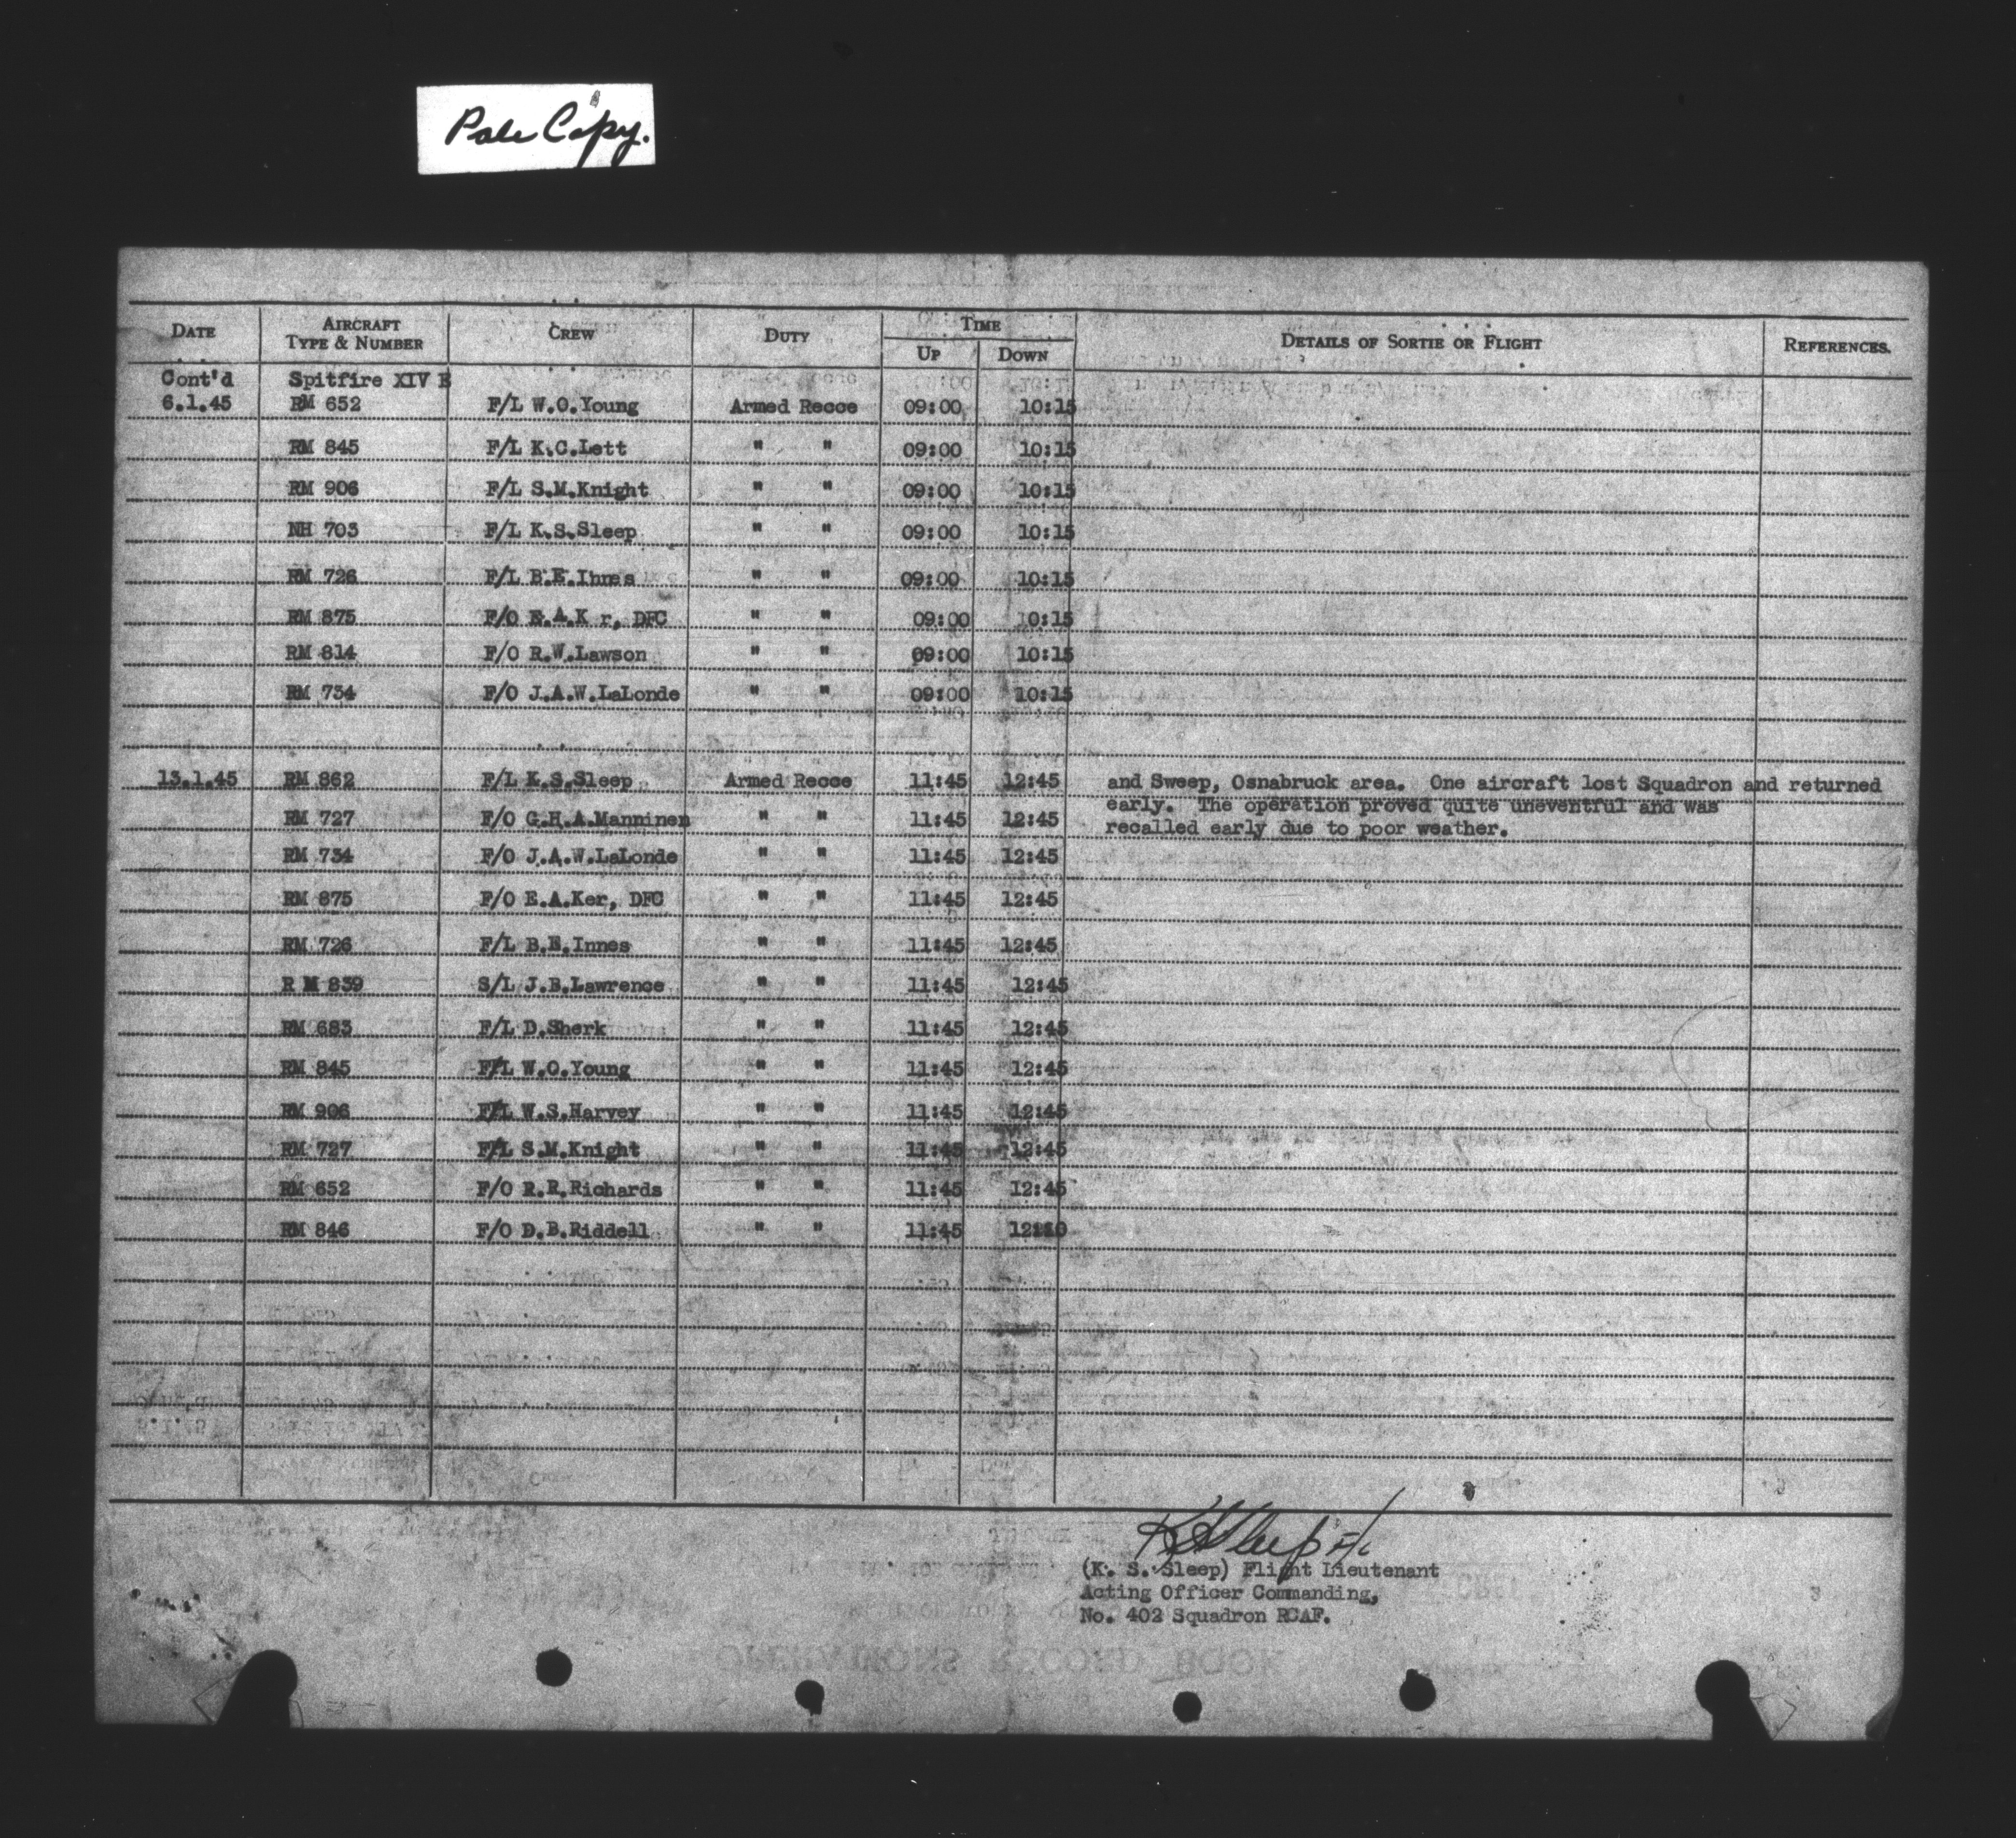 Pale Copy.
DATE AIRCRAFT TYPE & NUMBER CREW DUTY TIME UP DOWN DETAILS OF SORTIE OR FLIGHT REFERENCES.
Cont'd Spitfire XIV E
6.1.45 RM 652 F/L W.O.Young Armed Recce 09:00 10:15
RM 845 F/L K.C.Lett " " 09:00 10:15
RM 906 F/L S.M.Knight " " 09:00 10:15
NH 703 F/L K.S.Sleep " " 09:00 10:15
RM 726 F/L B.E.Innes " " 09:00 10:15
RM 875 F/O E.A.K r, DFC " " 09:00 10:15
RM 814 F/O R.W.Lawson " " 09:00 10:15
RM 734 F/O J.A.W.LaLonde " " 09:00 10:15
13.1.45 RM 862 F/L K.S.Sleep Armed Recce 11:45 12:45 and Sweep, Osnabruck area. One aircraft lost Squadron and returned
early. The operation proved quite uneventful and was
RM 727 F/O G.H.A.Manninen " " 11:45 12:45 recalled early due to poor weather.
RM 734 F/O J.A.W.LaLonde " " 11:45 12:45
RM 875 F/O E.A.Ker, DFC " " 11:45 12:45
RM 726 F/L B.E.Innes " " 11:45 12:45
R M 839 S/L J.B.Lawrence " " 11:45 12:45
RM 683 F/L D.Sherk " " 11:45 12:45
RM 845 F/L W.O.Young " " 11:45 12:45
RM 906 F/L W.S.Harvey " " 11:45 12:45
RM 727 F/L S.M.Knight " " 11:45 12:45
RM 652 F/O R.R.Richards " " 11:45 12:45
RM 846 F/O D.B.Riddell " " 11:45
KSSleep F/L
(K. S. Sleep) Flight Lieutenant
Acting Officer Commanding,
No. 402 Squadron RCAF.